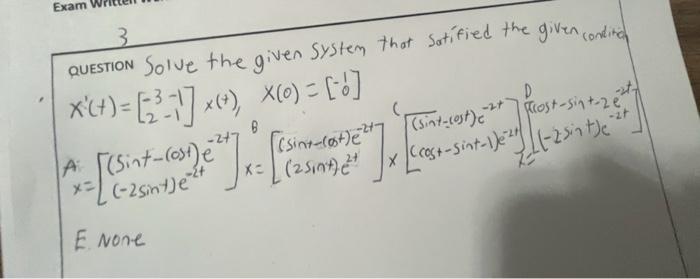 Exam
3
QUESTION Solve the given System that Satified the given condition
X'(t) = [-3 -1; 2 -1] x(t), X(0) = [-1; 0]
A. x = [(Sint-Cost)e^-2t; (-2sint)e^-2t]
B x = [(Sint-Cost)e^-2t; (2sint)e^2t]
C x [(Sint-cost)e^-2t; (cost-Sint-1)e^-2t]
D x = [cost-sint-2e^-2t; (-2sint)e^-2t]
E. None